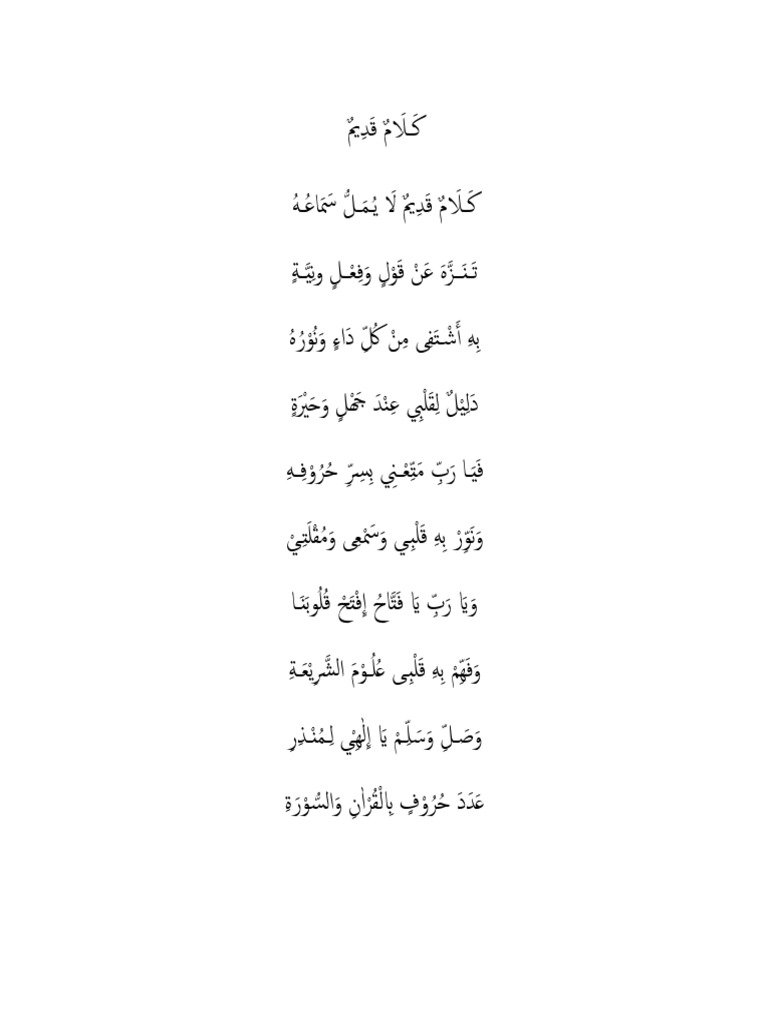 كَلَامٌ قَدِيمٌ
كَلَامٌ قَدِيمٌ لَا يُمَلُّ سَمَاعُهُ
تَنَزَّهَ عَنْ قَوْلٍ وَفِعْلٍ ونِيَّةٍ
بِهِ أَشْتَفِى مِنْ كُلِّ دَاءٍ وَنُوْرُهُ
دَلِيْلٌ لِقَلْبِي عِنْدَ جَهْلٍ وَحَيْرَةٍ
فَيَا رَبِّ مَتِّعْنِي بِسِرِّ حُرُوْفِهِ
وَنَوِّرْ بِهِ قَلْبِي وَسَمْعِى وَمُقْلَتِيْ
وَيَا رَبِّ يَا فَتَّاحُ إِفْتَحْ قُلُوبَنَا
وَفَهِّمْ بِهِ قَلْبِى عُلُوْمَ الشَّرِيْعَةِ
وَصَلِّ وَسَلِّمْ يَا إِلٰهِيْ لِمُنْذِرِ
عَدَدَ حُرُوْفٍ بِالْقُرْاٰنِ وَالسُّوْرَةِ